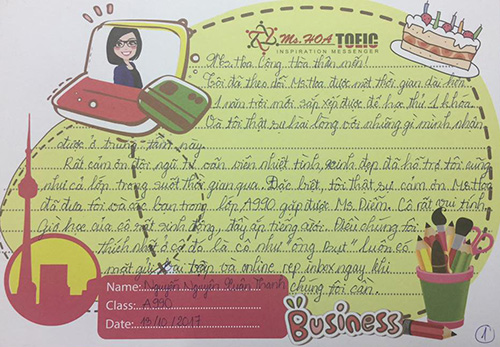 Ms. HOA TOEIC
INSPIRATION MESSENGER
Ms. Hoa Công Hòa thân mến!
Tôi đã theo dõi Ms Hoa được một thời gian dài hơn
1 năm trời mới sắp xếp được để học thử 1 khóa.
Và tôi thật sự hài lòng với những gì mình nhận
được ở trung tâm này.
Rất cảm ơn đội ngũ tư vấn viên nhiệt tình, xinh đẹp đã hỗ trợ tôi cũng
như cả lớp trong suốt thời gian qua. Đặc biệt, tôi thật sự cảm ơn Ms Hoa
đã đưa tôi và các bạn trong lớp A990 gặp được Ms. Diễm. Cô rất vui tính.
Giờ học của cô rất sinh động, đầy ắp tiếng cười. Điều chúng tôi
thích nhất ở cô đó là cô như "ông Bụt" luôn có
mặt giúp trực tiếp và online, rep inbox ngay khi
chúng tôi cần.
Name: Nguyễn Nguyên Xuân Thanh
Class: A990
Date: 13/10/2017
Business
1